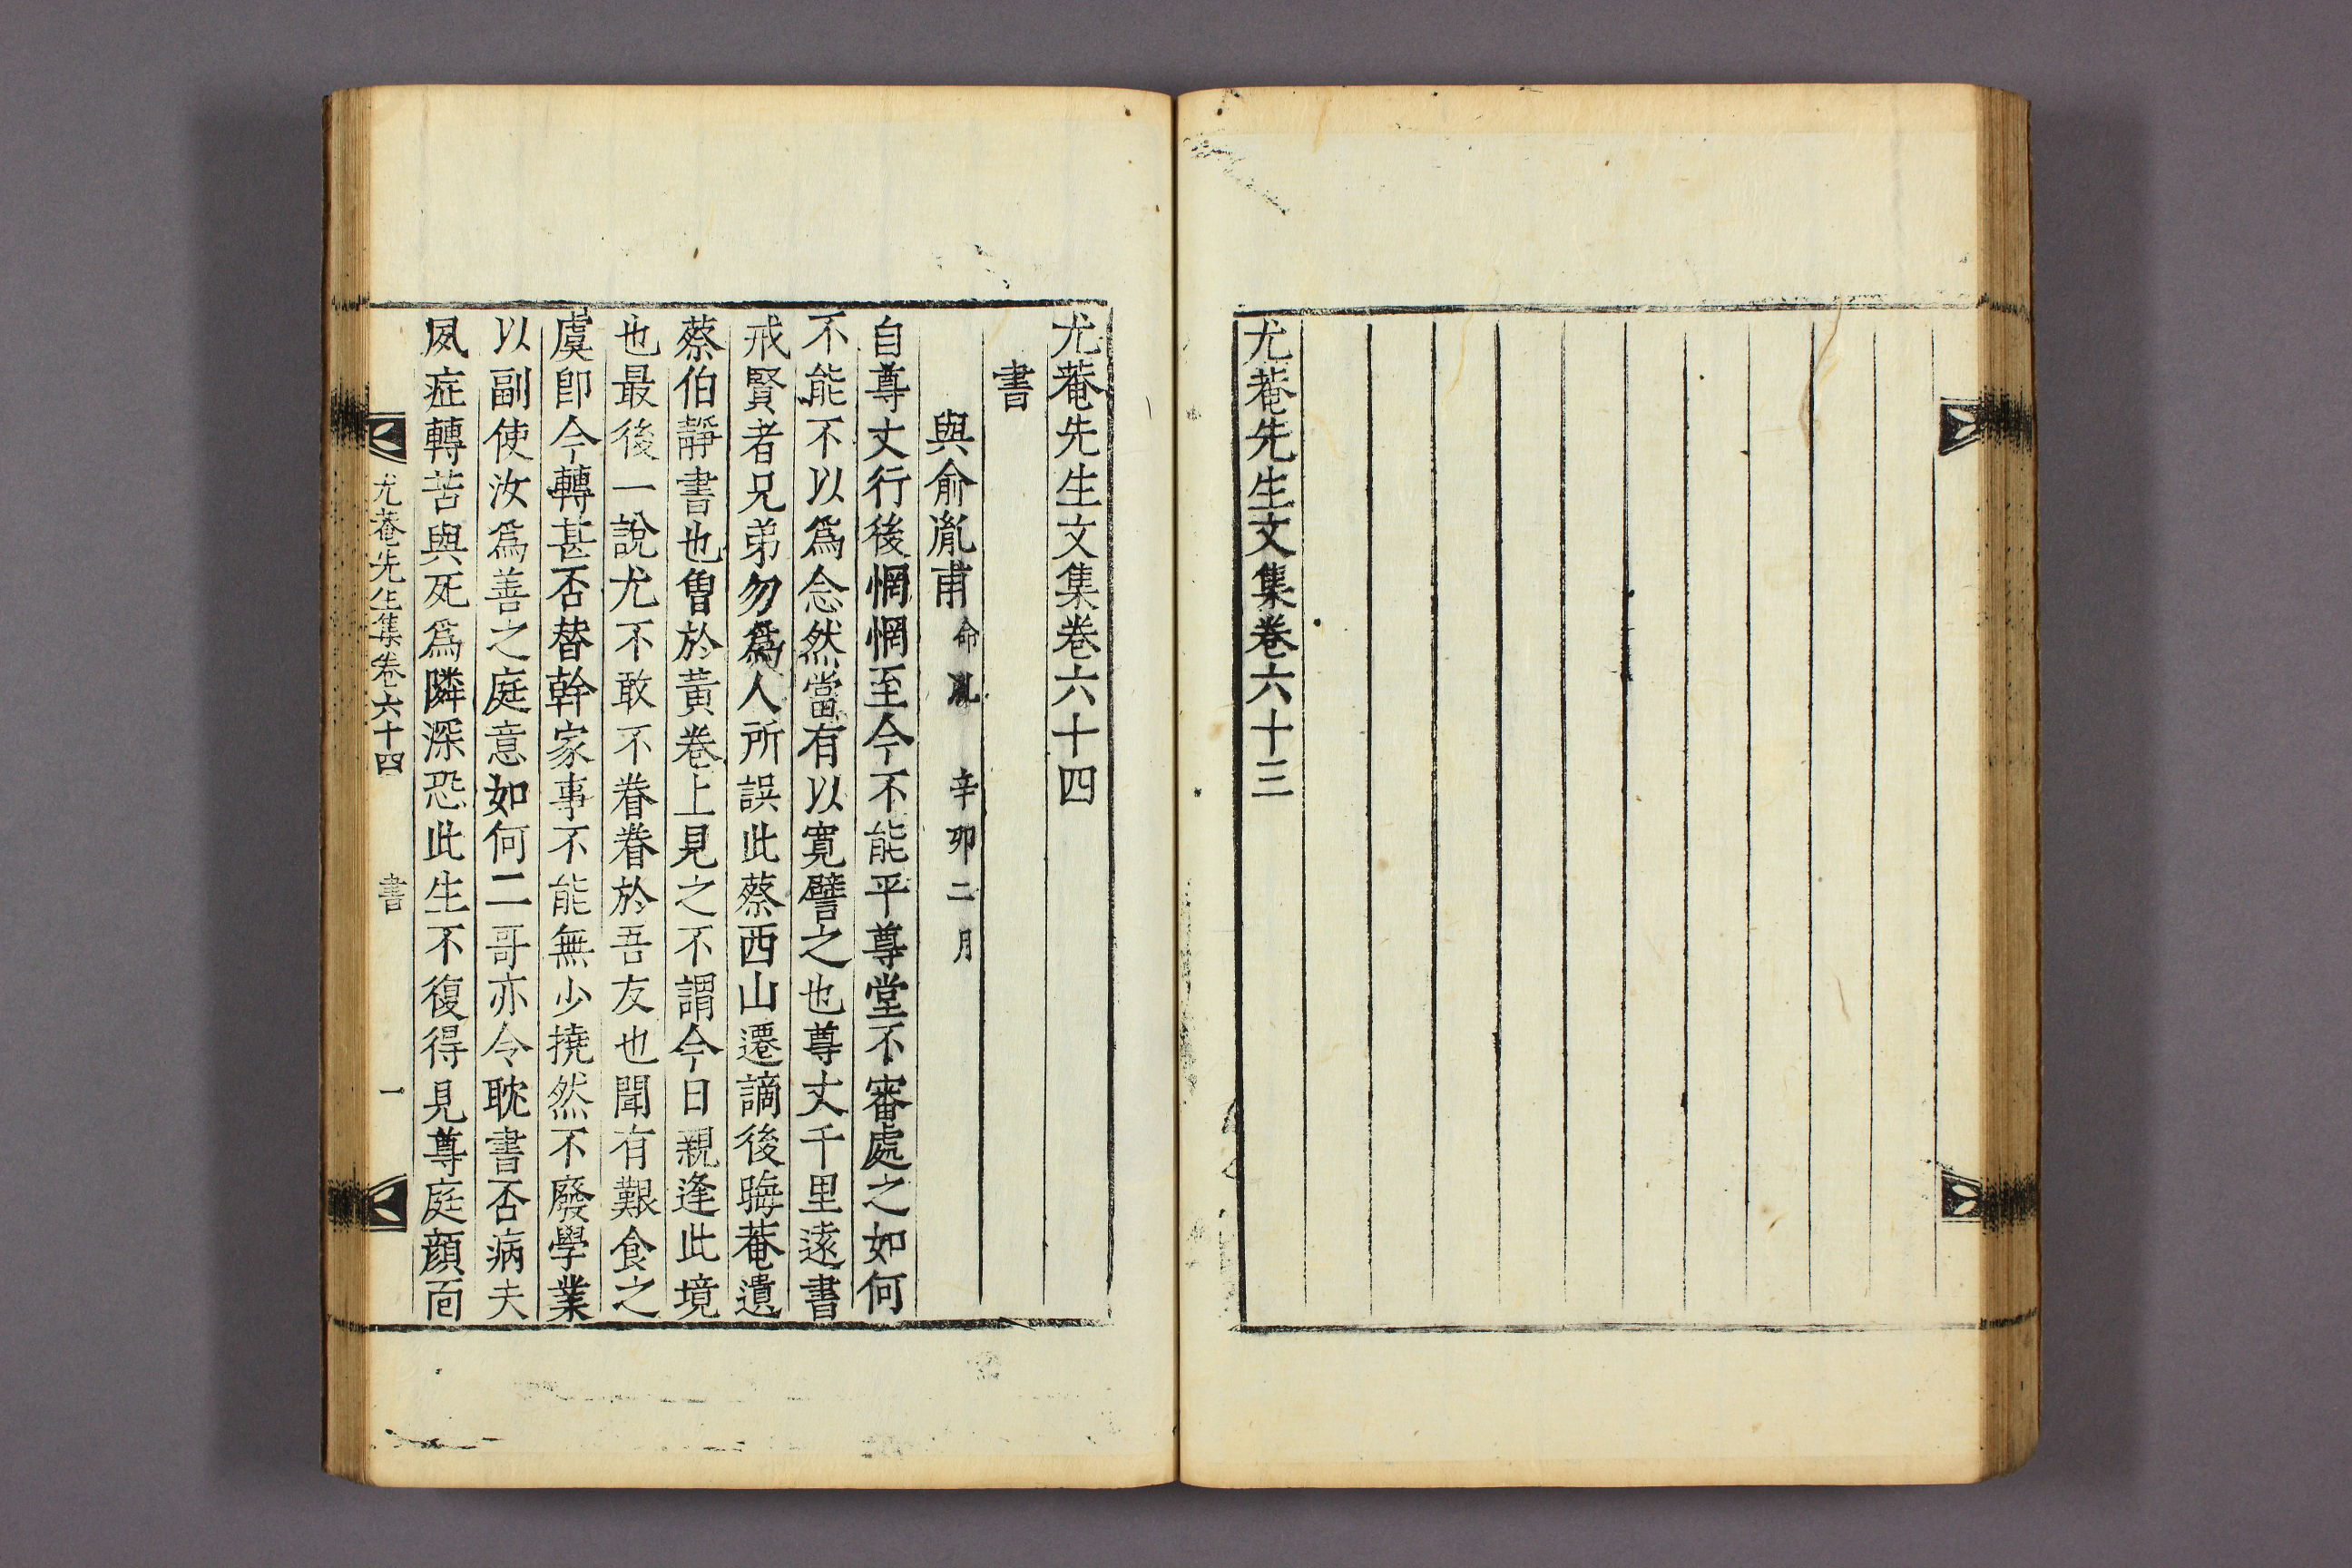 尤菴先生文集卷六十三
尤菴先生文集卷六十四
書
與俞胤甫 命胤 辛卯二月
自尊丈行後惘惘至今不能平尊堂不審處之如何
不能不以爲念然當有以寬譬之也尊丈千里遠書
戒賢者兄弟勿爲人所誤此蔡西山遷謫後晦菴遺
蔡伯靜書也曾於黃卷上見之不謂今日親逢此境
也最後一說尤不敢不眷眷於吾友也聞有艱食之
虞卽今轉甚否替幹家事不能無少撓然不廢學業
以副使汝爲善之庭意如何二哥亦令耽書否病夫
夙症轉苦與死爲隣深恐此生不復得見尊庭顔面
尤菴先生集卷六十四 書 一